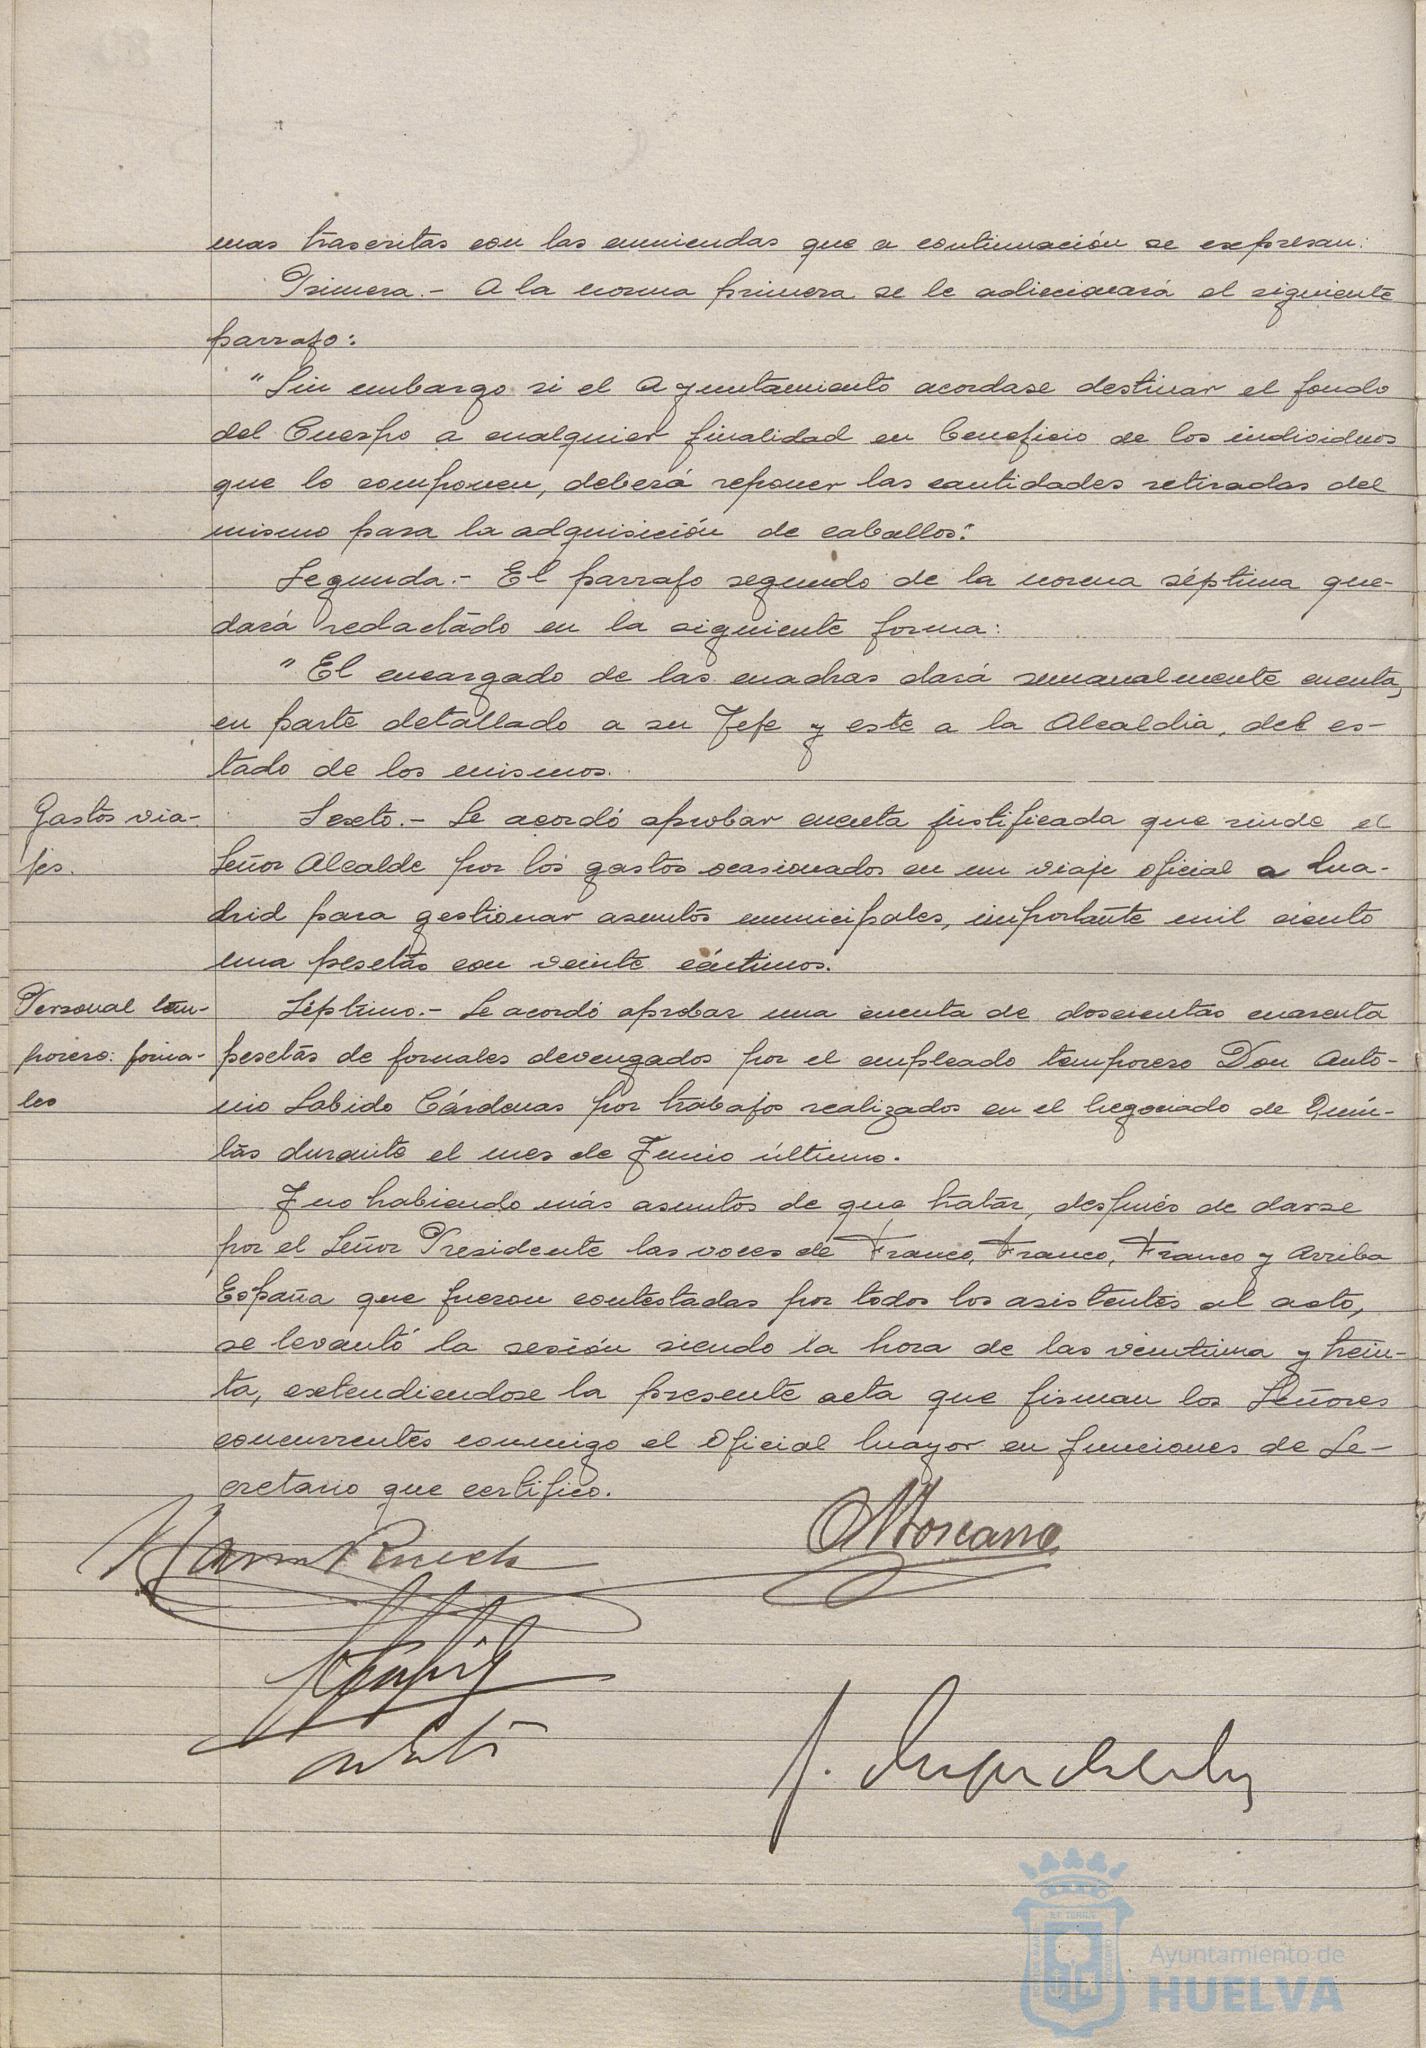 mas trascritas con las enmiendas que a continuación se expresan:
Primera.- A la norma primera se le adiccionará el siguiente
parrafo:
"Sin embargo si el Ayuntamiento acordase destinar el fondo
del Cuerpo a cualquier finalidad en beneficio de los individuos
que lo componen, deberá reponer las cantidades retiradas del
mismo para la adquisición de caballos."
Segunda.- El parrafo segundo de la norma séptima que-
dará redactado en la siguiente forma:
"El encargado de las cuadras dará semanalmente cuenta,
en parte detallado a su Jefe y este a la Alcaldia, del es-
tado de los mismos.
Gastos via-
jes.
Sexto.- Se acordó aprobar cuenta justificada que rinde el
Señor Alcalde por los gastos ocasionados en un viaje oficial a Ma-
drid para gestionar asuntos municipales, importante mil ciento
una pesetas con veinte céntimos.
Personal tem-
porero: jorna-
les
Séptimo.- Se acordó aprobar una cuenta de doscientas cuarenta
pesetas de jornales devengados por el empleado temporero Don Anto-
nio Sabido Cárdenas por trabajos realizados en el Negociado de Quin-
tas durante el mes de Junio último.
Y no habiendo más asuntos de que tratar, después de darse
por el Señor Presidente las voces de Franco, Franco, Franco y Arriba
España que fueron contestadas por todos los asistentes al acto,
se levantó la sesión siendo la hora de las veintiuna y trein-
ta, extendiendose la presente acta que firman los Señores
concurrentes conmigo el Oficial Mayor en funciones de Se-
cretario que certifico.
Ayuntamiento de
HUELVA